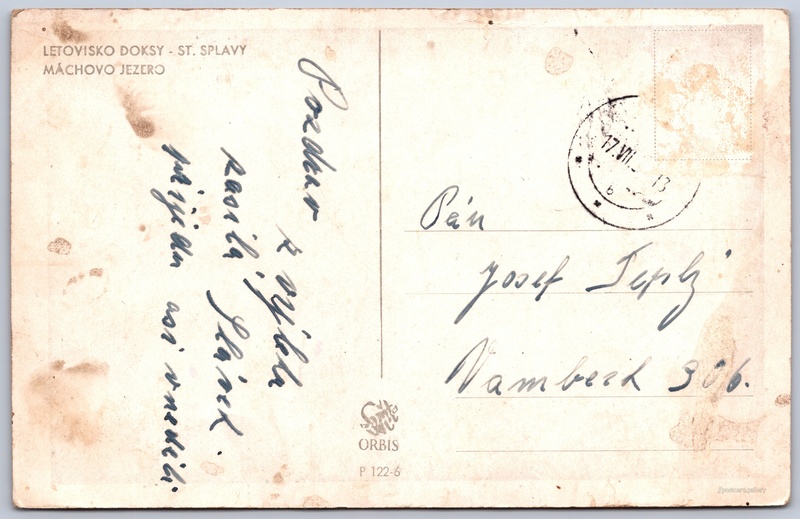 LETOVISKO DOKSY - ST. SPLAVY
MÁCHOVO JEZERO
Pozdrav
z výletu
zasílá Slávek.
přijedu asi v neděli
17.VII. 13
6
Pán
Josef Teplý
Vamberk 306.
ORBIS
P 122-6